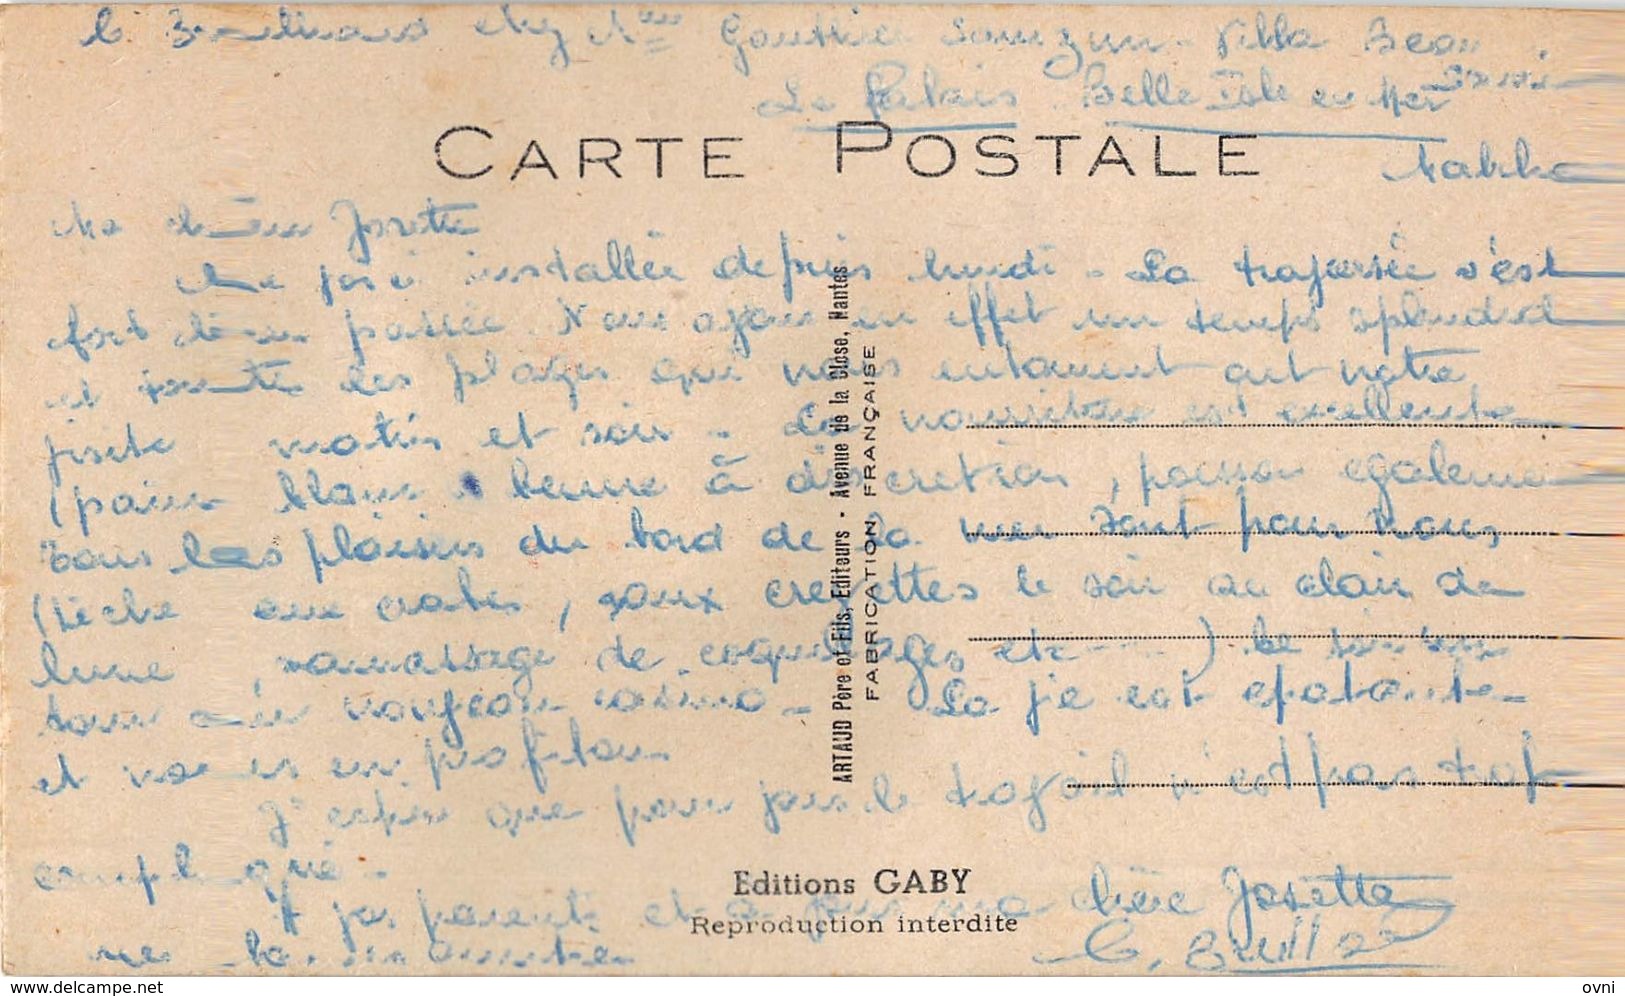 chez Mme Gouthier Samzun - Villa Beau
Le Palais Belle Isle en Mer
CARTE POSTALE
Ma chère Josette
Me voici installée depuis lundi - La traversée s'est
fort bien passée. Nous avons en effet un temps splendide
et toutes les plages qui nous entourent ont notre
visite matin et soir - La nourriture est excellente
(pain blanc beurre à discretion, poisson egalement
Tous les plaisirs du bord de la mer sont pour nous,
(Pêche aux crabes, aux crevettes le soir au clair de
lune, ramassage de coquillages etc ---) Le soir un
tour au nouveau casino - La vie est epatante
et nous en profitons
J'espère que pour vous le travail n'est pas trop
compliqué -
A vos parents et à vous ma chère Josette
mes
ARTAUD Père et Fils, Editeurs - Avenue de la Close, Nantes
FABRICATION FRANÇAISE
Editions GABY
Reproduction interdite
delcampe.net
ovni